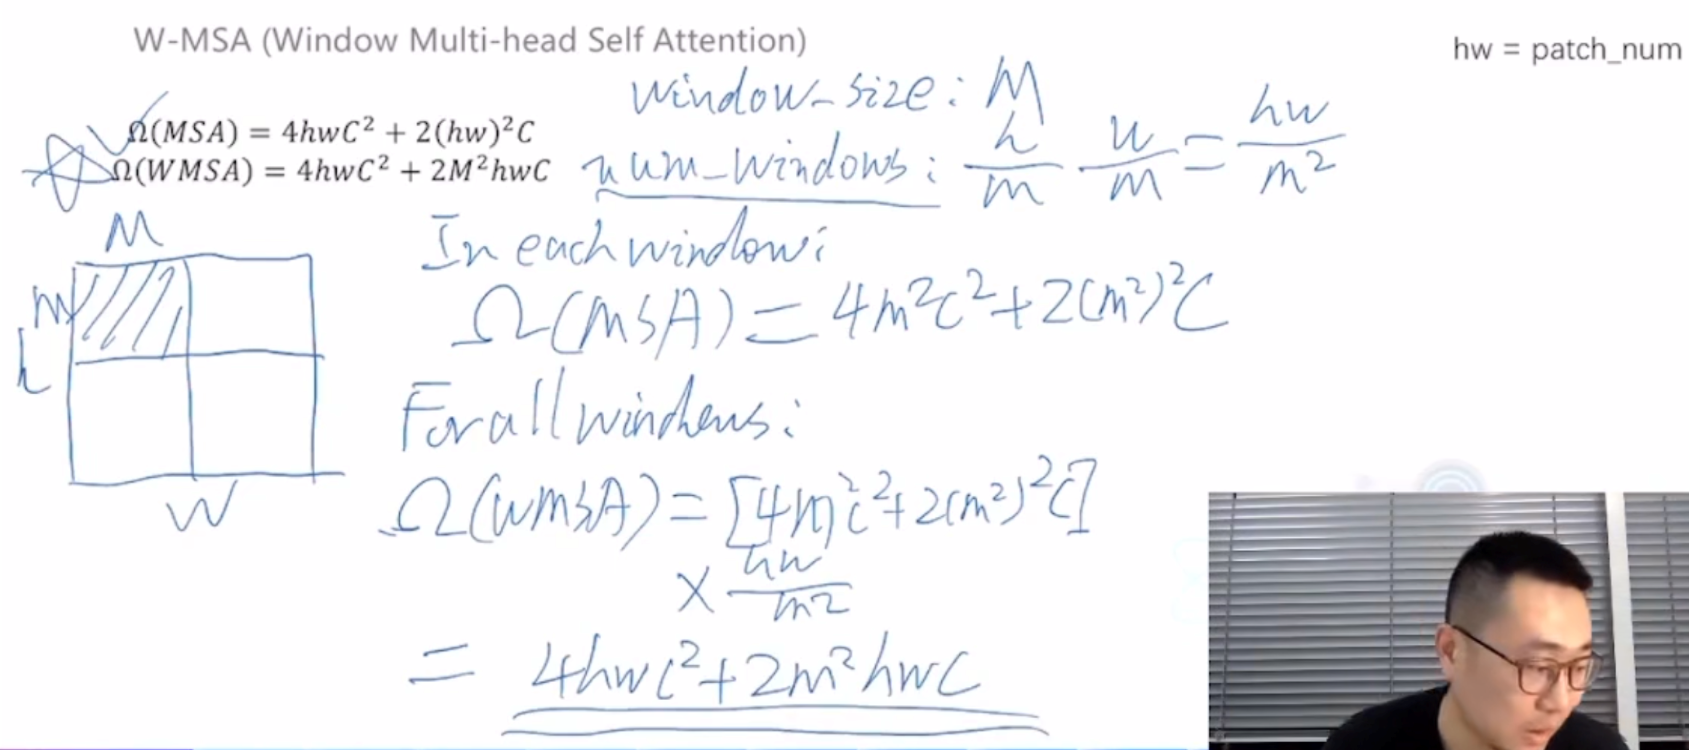 W-MSA (Window Multi-head Self Attention)
hw = patch_num
Ω(MSA) = 4hwC² + 2(hw)²C
Ω(WMSA) = 4hwC² + 2M²hwC
window_size: M
num_windows: h/m w/m = hw/m²
M
M
h
W
In each window:
Ω(MSA) = 4m²c² + 2(m²)²C
For all windows:
Ω(WMSA) = [4m²c² + 2(m²)²C]
× hw/m²
= 4hwc² + 2m²hwC